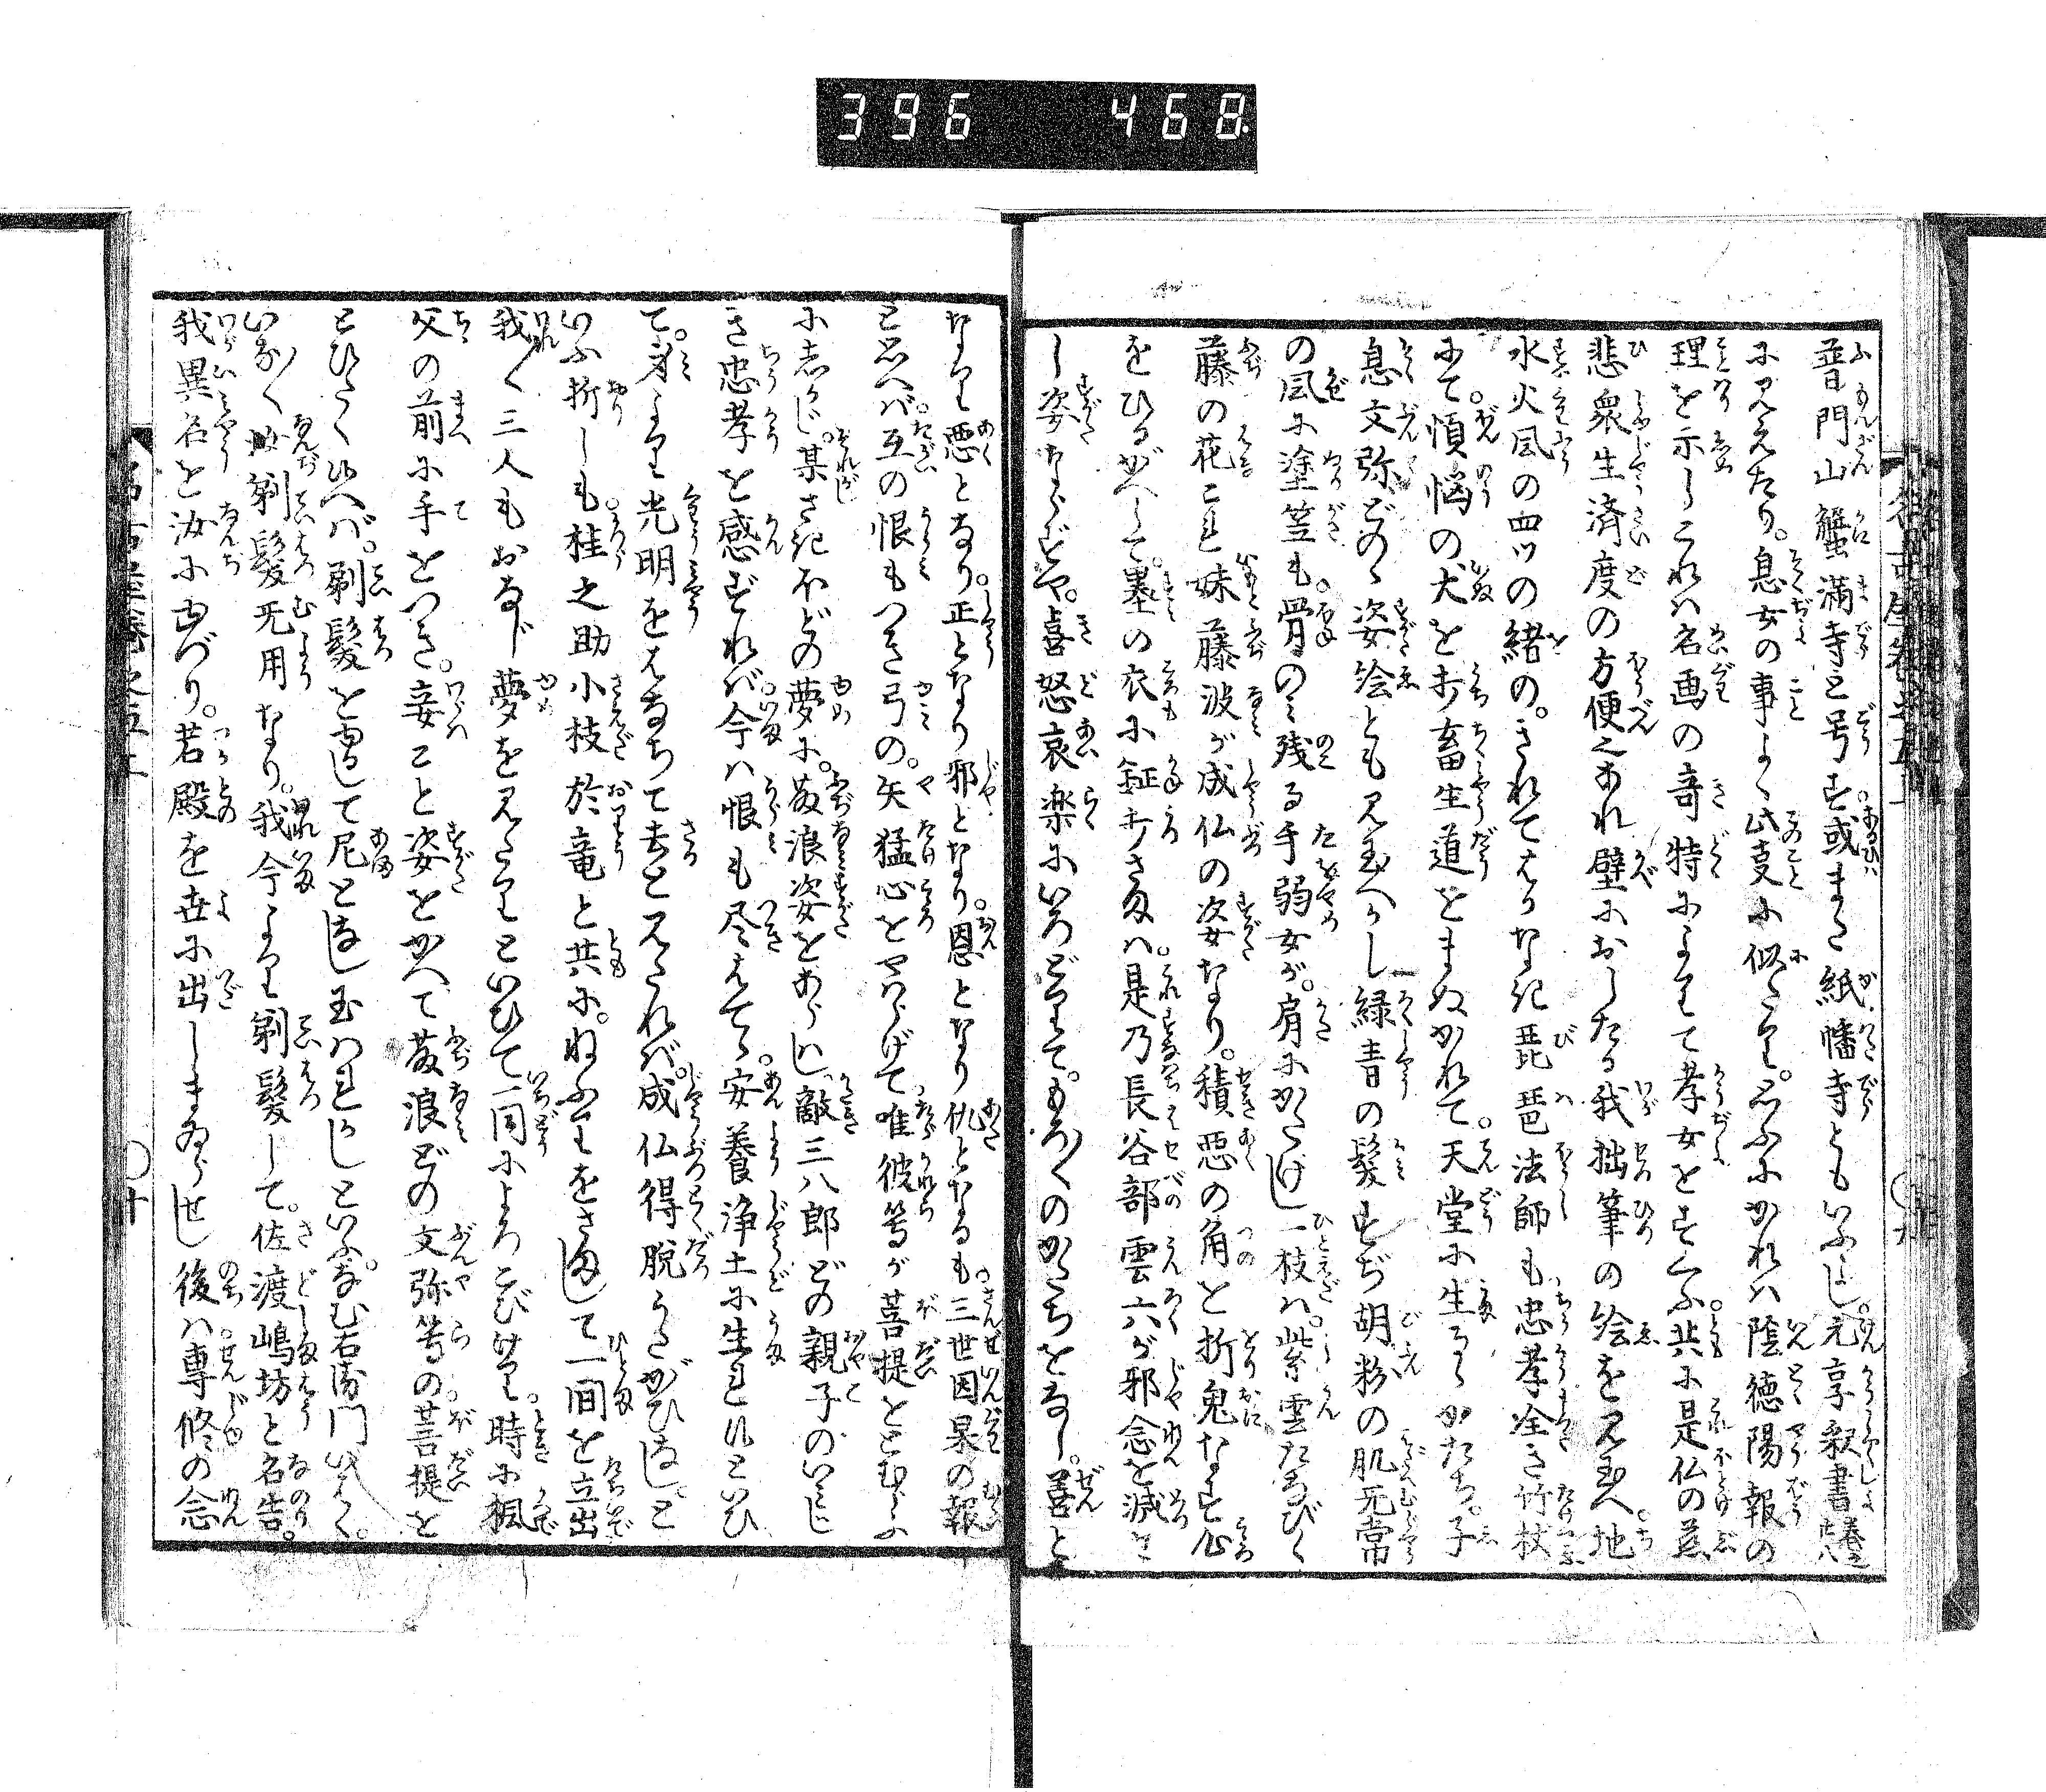 396 468
普門山蟹満寺と号す。或また紙幡寺ともいふよし。元享釈書巻之廿八
に見えたり。息女の事よく此事に似たり。思ふにかれは陰徳陽報の
理を示しこれは名画の奇特によりて孝女をすくふ。共に是仏の慈
悲衆生済度の方便にあれ壁におしたる我拙筆の絵を見玉へ。地
水火風の四ツの緒の。きれてはかなき琵琶法師も忠孝全き竹杖
にて。煩悩の犬を打畜生道をまぬかれて。天堂に生るゝかたち。子
息文弥どのゝ姿絵とも見玉へかし緑青の髪すぢ胡粉の肌无常
の風に塗笠も。骨のみ残る手弱女が。肩にかたげし一枝は。紫雲たなびく
藤の花こは妹藤波が成仏の姿なり。積悪の角を折鬼なす心
をひるがへして。墨の衣に鉦打さまは。是乃長谷部雲六が邪念を滅せ
し姿ならずや。喜怒哀楽にいろどりて。もろ〳〵のかたちをなし。善と
なり悪となり。正となり邪となり。恩となり仇となるも。三世因果の報
と思へば互の恨もつき弓の。矢猛心をやはらげて唯彼等が菩提をとむらふ
にしかじ。某さきほどの夢に。藤浪姿をあらはし敵三八郎どの親子のいみじ
き忠孝を感ずれば今は恨も尽はてゝ。安養浄土に生れ侍といひ
て。身より光明をはなちて去と見たれば。成仏得脱うたがひなしと
いふ折しも。桂之助小枝於竜と共に。ねふりをさまして一間を立出
我〳〵三人もおなじ夢を見たりといひて一同によろこびけり。時に楓
父の前に手をつき。妾こと姿をかへて藤浪どの文弥等の。菩提を
とひたく候へば。剃髪を許して尼となし玉はれかしといふ。なむ右衛門いはく。
いな〳〵汝剃髪无用なり。我今より剃髪して。佐渡嶋坊と名告。
我異名を汝にゆづり。若殿を世に出しまゐらせし後は。専修の念